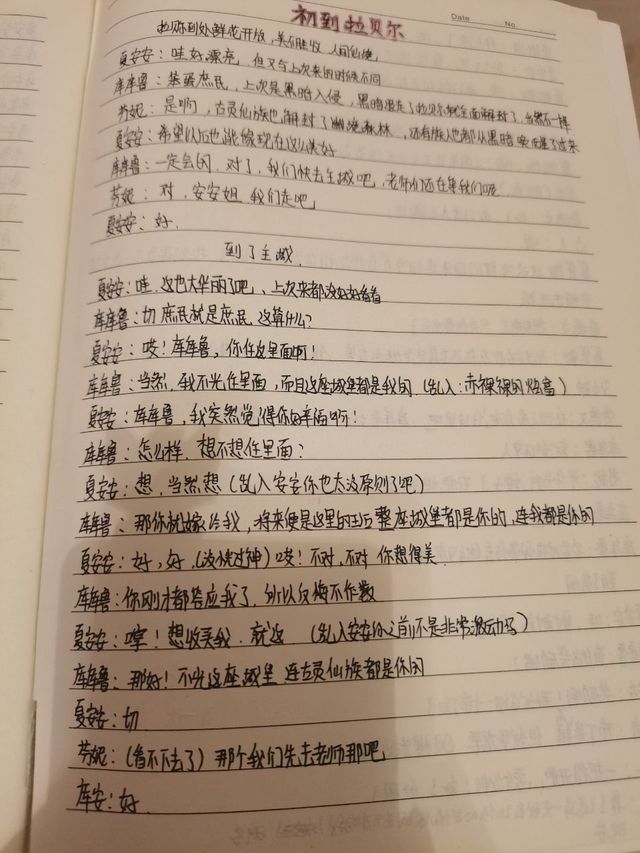 初到拉贝尔
Date No
拉贝尔到处鲜花开放，美不胜收，人间仙境
夏安安：哇好漂亮，但又与上次来的时候不同
库库鲁：笨蛋庶民，上次是黑暗入侵，黑暗退走了拉贝尔就全面解封了，当然不一样
芬妮：是啊，古灵仙族也解封了 森林，还有族人也都从黑暗 了过来
夏安安：希望以后也能像现在这么美好
库库鲁：一定会的，对了，我们快去主城吧，老师们还在等我们呢
芬妮：对，安安姐 我们走吧
夏安安：好.
到了主城.
夏安安：哇.这也太华丽了吧、上次来都没好好看看
库库鲁：切 庶民就是庶民 这算什么？
夏安安：咦！库库鲁，你住这里面啊！
库库鲁：当然，我不光住里面，而且这座城堡都是我的（乱入：赤裸裸的炫富）
夏安安：库库鲁，我突然觉得你好幸福啊！
库库鲁：怎么样，想不想住里面？
夏安安：想，当然想（乱入安安你也太没原则了吧）
库库鲁：那你就嫁给我，将来便是这里的王后 整座城堡都是你的，连我都是你的
夏安安：好，好，（没快过神）咦！不对，不对 你想得美
库库鲁：你刚才都答应我了，所以反悔不作数
夏安安：哼！想收买我．就这 （乱入安安你之前不是非常激动吗）
库库鲁：那好！不光这座城堡 连古灵仙族都是你的
夏安安：切
芬妮：（看不下去了）那个我们先去老师那吧
库安：好